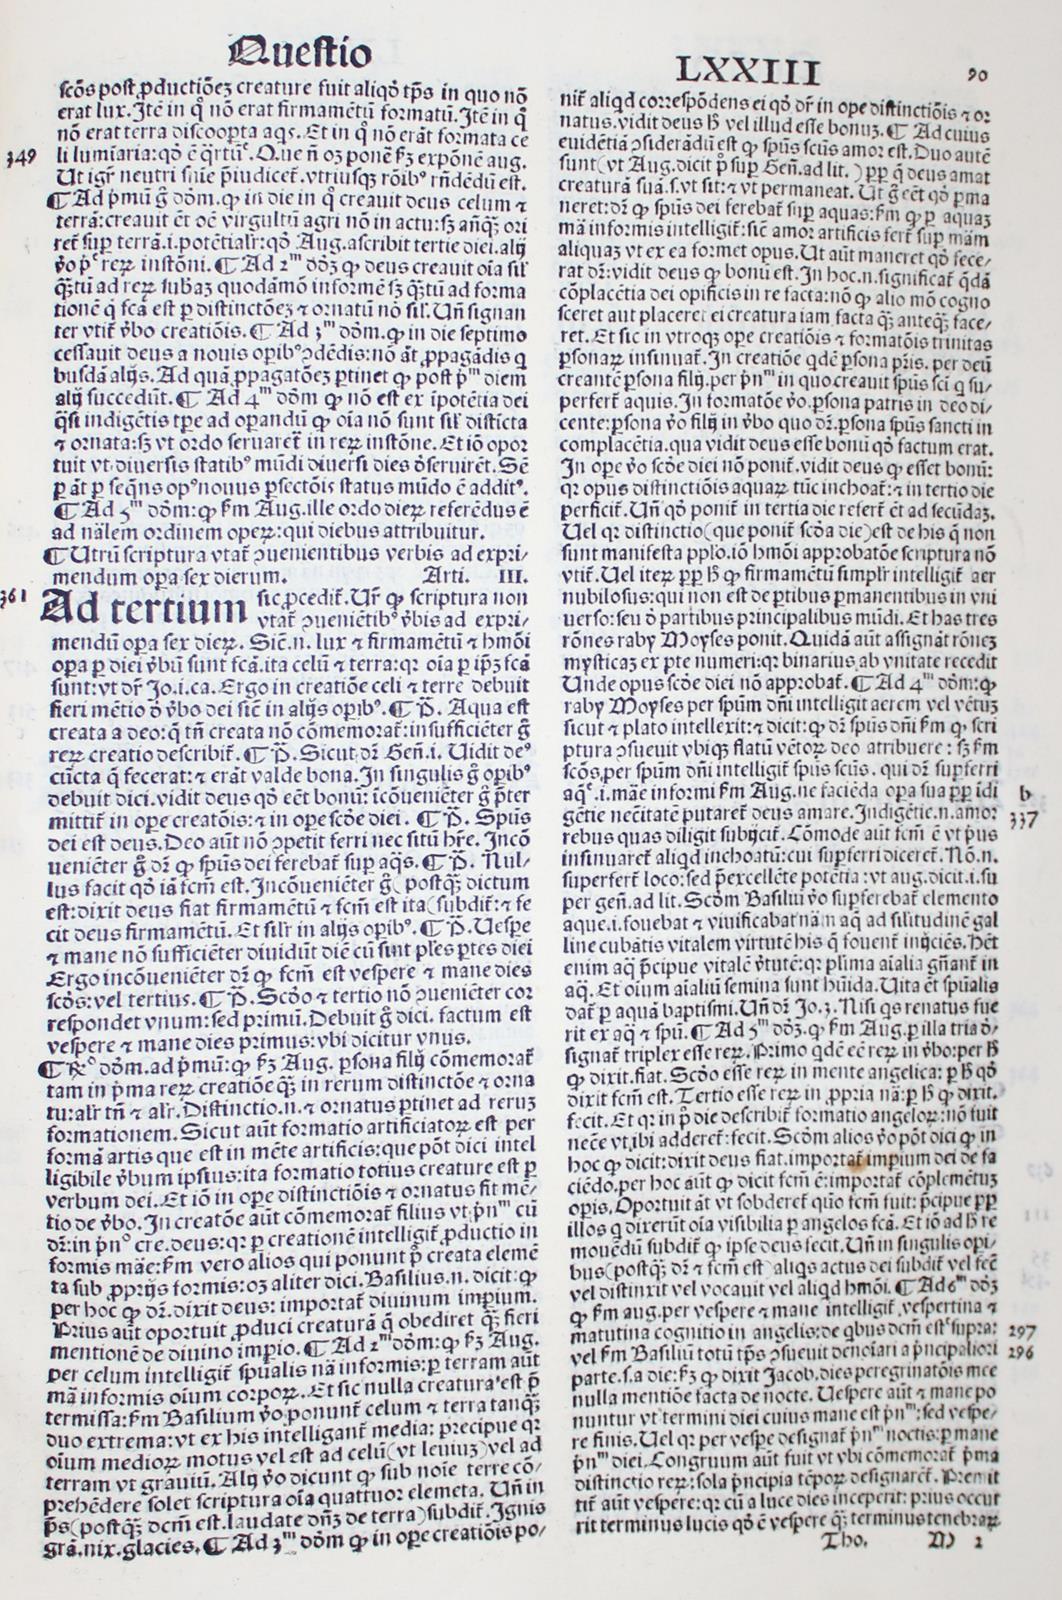 Questio
LXXIII
90
scõs post ꝓductiõeȝ creature fuit aliqd̛ tp̃s in quo nõ
erat lux. Itẽ in q̃ nõ erat firmamẽtũ formatũ. Itẽ in q̃
nõ erat terra discoopta aqs. Et in q̃ nõ erãt formata ce
349
li lumĩaria: qd̛ ẽ q̃rtũ. Que ñ oȝ ponẽ fȝ expõnẽ aug.
Ut igr̃ neutri snĩe p̃iudicet̃. vtriusqȝ rõibꝰ rñdẽdũ est.
¶ Ad p̃mũ g̃ dõm. ꝙ in die in q̃ creauit deus celum ⁊
terrã: creauit ẽt oẽ virgultũ agri nõ in actu: sȝ anq̃ȝ ori
ret̃ sup terrã .i. potẽtialr̃: qd̛ Aug. ascribit tertie diei. alij
ṽo p̃ᵉ reꝝ instõni. ¶ Ad 2ᵐ dõȝ ꝙ deus creauit oĩa sil̃
q̃ȝtũ ad reꝝ subaȝ quodãmõ informẽ sȝ q̃ȝtũ ad forma
tionẽ q̃ fcã est ꝑ distinctõeȝ ⁊ ornatũ nõ sil̃. Uñ signan
ter vtit̃ ṽbo creatiõis. ¶ Ad 3ᵐ dõm. ꝙ in die septimo
cessauit deus a nouis opibꝰ ꝯdẽdis: nõ ãt ꝓpagãdis q
busdã alijs. Ad quã ꝓpagatõeȝ ꝑtinet ꝙ post p̃ᵐ diem
alij succedũt. ¶ Ad 4ᵐ dõm ꝙ nõ est ex ĩpotẽtia dei
q̃si indigẽtis tp̃e ad opandũ ꝙ oĩa nõ sunt sil̃ distĩcta
⁊ ornata: sȝ vt ordo seruaret̃ in reꝝ instõne. Et iõ opor
tuit vt diuersis statibꝰ mũdi diuersi dies d̛seruirẽt. Sẽ
ꝑ ãt ꝑ seq̃ns opꝰ nouus ꝑfectõis status mũdo ẽ additꝰ.
¶ Ad 5ᵐ dõm: ꝙ fm Aug. ille ordo dieꝝ referẽdus ẽ
ad nãlem ordinem opeꝝ: qui diebus attribuitur.
¶ Utrũ scriptura vtat̃ ꝯuenientibus verbis ad expri/
mendum opa sex dierum. Arti. III.
361
Ad tertium sic ꝓcedit̃. Ur̃ ꝙ scriptura non
vtat̃ ꝯueniẽtibꝰ ṽbis ad expri/
mendũ opa sex dieꝝ. Sic̃ .n. lux ⁊ firmamẽtũ ⁊ hmõi
opa ꝑ diei ṽbũ sunt fcã. ita celũ ⁊ terra: qꝛ oĩa ꝑ ip̃ȝ fcã
sunt: vt dr̃ Jo.i.ca. Ergo in creatiõe celi ⁊ terre debuit
fieri mẽtio d̛ ṽbo dei sic̃ in alijs opibꝰ. ¶ P̃. Aqua est
creata a deo: q̃ tñ creata nõ cõmemorat̃: insufficiẽter g̃
reꝝ creatio describit̃. ¶ P̃. Sicut dr̃ Geñ.i. Uidit deꝰ
cũcta q̃ fecerat: ⁊ erãt valde bona. In singulis g̃ opibꝰ
debuit dici. vidit deus qd̛ eẽt bonũ: ĩcõueniẽter g̃ p̃ter
mittit̃ in ope creatõis: ⁊ in ope scõe diei. ¶ P̃. Spũs
dei est deus. Deo aũt nõ ꝯpetit ferri nec sitũ hr̃e. Incõ
ueniẽter g̃ dr̃ ꝙ spũs dei ferebat̃ sup aq̃s. ¶ P̃. Nul/
lus facit qd̛ iã fcm̃ est. Incõueniẽter g̃ (postq̃ȝ dictum
est: dixit deus fiat firmamẽtũ ⁊ fcm̃ est ita (subdit̃: ⁊ fe
cit deus firmamẽtũ. Et silr̃ in alijs opibꝰ. ¶ P̃. Uespe
⁊ mane nõ sufficiẽter diuidũt diẽ cũ sint p̃les ꝑtes diei
Ergo incõueniẽter dr̃ ꝙ fcm̃ est vespere ⁊ mane dies
scõs: vel tertius. ¶ P̃. Scõo ⁊ tertio nõ ꝯueniẽter cor
respondet vnum: sed primũ. Debuit g̃ dici. factum est
vespere ⁊ mane dies primus: vbi dicitur vnus.
¶ R̃º dõm. ad p̃mũ: ꝙ fȝ Aug. ꝑsona filij cõmemorat̃
tam in p̃ma reꝝ creatiõe q̃ȝ in rerum distinctõe ⁊ orna
tu: alr̃ tñ ⁊ alr̃. Distinctio .n. ⁊ ornatus ꝑtinet ad reruȝ
formationem. Sicut aũt formatio artificiatoꝝ est per
formã artis que est in mẽte artificis: que põt dici intel
ligibile ṽbum ipsius: ita formatio totius creature est ꝑ
verbum dei. Et iõ in ope distinctiõis ⁊ ornatus fit mẽ/
tio de ṽbo. In creatõe aũt cõmemorat̃ filius vt p̃nᵐ cũ
dr̃: in p̃nº cre. deus: qꝛ ꝑ creationẽ intelligit̃ ꝓductio in
formis mãe: fm vero alios qui ponunt p̃ creata elemẽ
ta sub ꝓprijs formis: oȝ aliter dici. Basilius .n. dicit: ꝙ
per hoc ꝙ dr̃. dixit deus: importat̃ diuinum impium.
Prius aũt oportuit ꝓduci creaturã q̃ obediret q̃ȝ fieri
mentionẽ de diuino impio. ¶ Ad 2ᵐ dõm: ꝙ fȝ Aug.
per celum intelligit̃ spũalis nã informis: ꝑ terram aũt
mã informis oĩum corpoꝝ. Et sic nulla creatura est p̃
termissa: fm Basilium ṽo ponunt̃ celum ⁊ terra tanq̃ȝ
duo extrema: vt ex his intelligant̃ media: precipue qꝛ
oĩum medioꝝ motus vel est ad celũ (vt leuiuȝ) vel ad
terram vt grauiũ. Alij ṽo dicunt ꝙ sub noĩe terre cõ/
prehẽdere solet scriptura oĩa quattuor elemẽta. Uñ in
p̃s (postq̃ȝ dcm̃ est. laudate dñȝ de terra) subdit̃. Ignis
grã. nix. glacies. ¶ Ad 3ᵐ dõm ꝙ in ope creatiõis po/
nit̃ aliqd correspõdens ei qd̛ dr̃ in ope distinctiõis ⁊ or
natus. vidit deus h̃ vel illud esse bonuȝ. ¶ Ad cuius
euidẽtiã ꝯsiderãdũ est ꝙ spũs scũs amor est. Duo autẽ
sunt (vt Aug. dicit p̃ sup Geñ. ad lit.) ꝓp q̃ deus amat
creaturã suã .s. vt sit: ⁊ vt permaneat. Ut g̃ eẽt qd̛ ꝑma
neret: dr̃ ꝙ spũs dei ferebat̃ sup aquas: fm ꝙ ꝑ aquaȝ
mã informis intelligit̃: sic̃ amor artificis fert̃ sup mãm
aliquaȝ vt ex ea formet opus. Ut aũt maneret qd̛ fece/
rat dr̃: vidit deus ꝙ bonũ est. In hoc .n. significat̃ q̃dã
cõplacẽtia dei opificis in re facta: nõ ꝙ alio mõ cogno
sceret aut placeret ei creatura iam facta q̃ȝ anteq̃ȝ face/
ret. Et sic in vtroqȝ ope creatiõis ⁊ formatõis trinitas
ꝑsonaꝝ insinuat̃. In creatiõe q̃dẽ ꝑsona p̃ris. per deũ
creantẽ ꝑsona filij. per p̃nᵐ in quo creauit spũs sci̇ q su/
perfert̃ aquis. In formatõe ṽo. ꝑsona patris in deo di/
cente: ꝑsona ṽo filij in ṽbo quo dr̃. ꝑsona spũs sancti in
complacẽtia. qua vidit deus esse bonũ qd̛ factum erat.
In ope ṽo scõe diei nõ ponit̃. vidit deus ꝙ esset bonũ:
qꝛ opus distinctiõis aquaꝝ tũc inchoat̃: ⁊ in tertio die
perficit̃. Uñ qd̛ ponit̃ in tertia die refert̃ ẽt ad secũdaȝ.
Uel qꝛ distinctio (que ponit̃ scõa die) est de his q̃ non
sunt manifesta pplo. iõ hmõi approbatõe scriptura nõ
vtit̃. Uel iteꝝ ꝓp h̃ ꝙ firmamẽtũ simplr̃ intelligit̃ aer
nubilosus: qui non est de ꝑtibus ꝑmanentibus in vni
uerso: seu d̛ partibus principalibus mũdi. Et has tres
rõnes raby Moyses ponit. Quidã aũt assignãt rõneȝ
mysticaȝ ex pte numeri: qꝛ binarius ab vnitate recedit
Unde opus scõe diei nõ approbat̃. ¶ Ad 4ᵐ dõm: ꝙ
raby Moyses per spũm dñi intelligit aerem vel vẽtuȝ
sicut ⁊ plato intellexit: ⁊ dicit: ꝙ dr̃ spũs dñi fm ꝙ scri
ptura ꝯsueuit vbiqȝ flatũ vẽtoꝝ deo atribuere: sȝ fm
scõs, per spũm dñi intelligit̃ spũs scũs. qui dr̃ supferri
b
aq̃ .i. mãe informi fm Aug. ne faciẽda opa sua ꝓp ĩdi
337
gẽtie necẽitatẽ putaret̃ deus amare. Indigẽtie .n. amor
rebus quas diligit subijcit̃. Cõmode aũt fcm̃ ẽ vt p̃us
insinuaret̃ aliqd inchoatũ: cui supferri diceret̃. Nõ .n.
superfert̃ loco: sed p̃excellẽte potẽtia: vt aug. dicit .i. su
per geñ. ad lit. Scdm̃ Basiliũ ṽo supferebat̃ elemento
aque .i. fouebat ⁊ viuificabat nãm aq̃ ad silitudinẽ gal
line cubãtis vitalem virtutẽ his q̃ fouent̃ inijciẽs. Hẽt
enim aq̃ p̃cipue vitalẽ ṽtutẽ: qꝛ plĩma aĩalia gñant̃ in
aq̃. Et oĩum aĩaliũ semina sunt hũida. Uita ẽt spũalis
dat̃ ꝑ aquã baptismi. Uñ dr̃ Jo.3. Nisi qs renatus fue
rit ex aq̃ ⁊ spũ. ¶ Ad 5ᵐ dõȝ. ꝙ fm Aug. ꝑ illa tria d̛/
signat̃ triplex esse reꝝ. Primo q̃dẽ eẽ reꝝ in ṽbo: per h̃
ꝙ dixit. fiat. Scõo esse reꝝ in mente angelica: ꝑ h̃ qd̛
dixit fcm̃ est. Tertio esse reꝝ in ꝓpria nã: ꝑ h̃ ꝙ dixit.
fecit. Et qꝛ in p̃ die describit̃ formatio angeloꝝ: nõ fuit
necẽ vt ibi adderet̃: fecit. Scdm̃ alios ṽo põt dici ꝙ in
hoc ꝙ dicit: dixit deus fiat. importat̃ impium dei de fa
ciẽdo. per hoc aũt ꝙ dicit fcm̃ ẽ: importat̃ cõplemẽtuȝ
opis. Oportuit ãt vt sobderet̃ quõ fcm̃ fuit: p̃cipue ꝓp
illos q̃ dixerũt oĩa visibilia ꝑ angelos fcã. Et iõ ad h̃ re
mouẽdũ subdit̃ ꝙ ipse deus fecit. Uñ in singulis opi/
bus (postq̃ȝ dr̃ ⁊ fcm̃ est) aliqs actus dei subdit̃ vel fec̃
vel distinxit vel vocauit vel aliqd hmõi. ¶ Ad 6ᵐ dõȝ
ꝙ fm aug. per vespere ⁊ mane intelligit̃ vespertina ⁊
297
matutina cognitio in angelis: de qbus dcm̃ est supra:
296
vel fm Basiliũ totũ tp̃s ꝯsueuit denoĩari a p̃ncipaliori
parte .s. a die: fȝ ꝙ dixit Jacob. dies peregrinatõis mee
nulla mentiõe facta de nocte. Uespere aũt ⁊ mane po
nuntur vt termini diei cuius mane est p̃nᵐ: sed vespe/
re finis. Uel qꝛ per vespe designat̃ p̃nᵐ noctis: ꝑ mane
p̃nᵐ diei. Congruum aũt fuit vt vbi cõmemorat̃ p̃ma
distinctio reꝝ: sola p̃ncipia tẽpoꝝ designarẽt̃. Premit
tit̃ aũt vespere: qꝛ cũ a luce dies inceperit: prius occur
rit terminus lucis qd̛ ẽ vespere q̃ȝ terminus tenebraꝝ
Tho. M 2